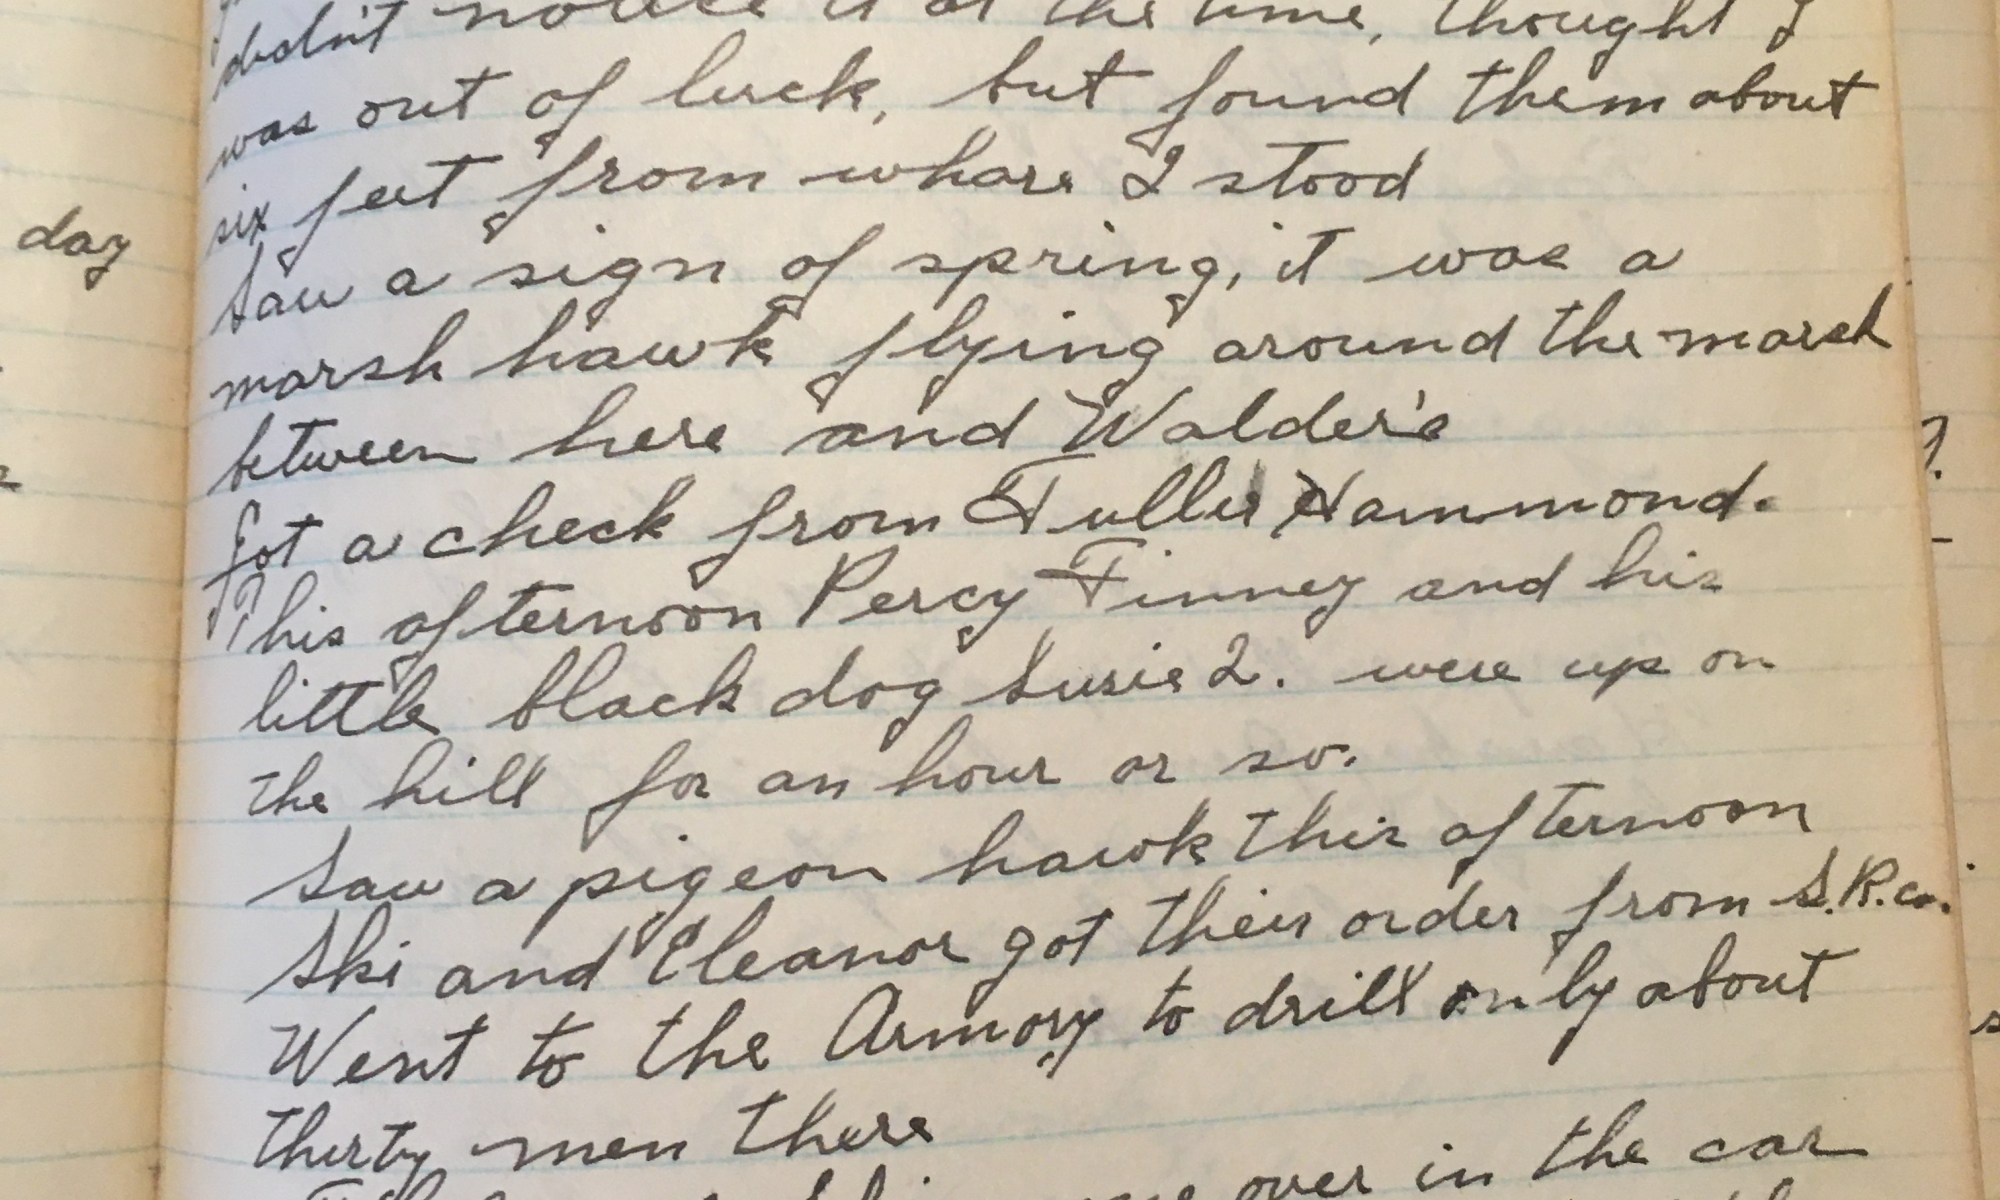 day
didn't notice it at the time, thought I
was out of luck, but found them about
six feet from whare I stood
Saw a sign of spring, it was a
marsh hawk flying around the marsh
between here and Walder's
Got a check from Fuller Hammond.
This afternoon Percy Finney and his
little black dog Susie 2. were up on
the hill for an hour or so.
Saw a pigeon hawk this afternoon
Ski and Eleanor got their order from S.R.co.
Went to the Armory to drill only about
thirty men there
over in the car